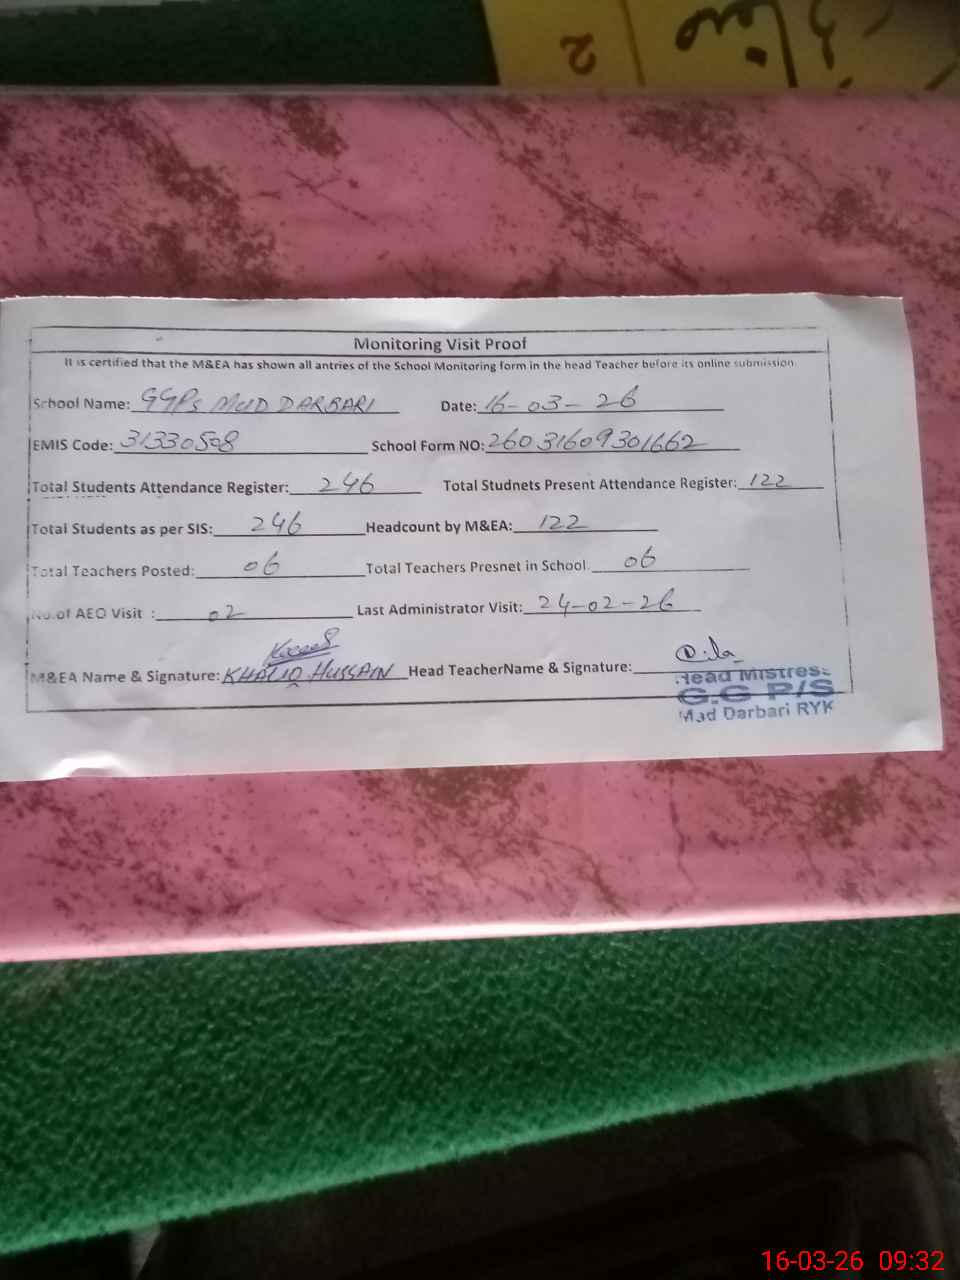 2
Monitoring Visit Proof
It is certified that the M&EA has shown all antries of the School Monitoring form in the head Teacher before its online submission.
School Name: GGPS MUD DARBARI Date: 16-03-26
EMIS Code: 31330508 School Form NO: 26031609301662
Total Students Attendance Register: 246 Total Studnets Present Attendance Register: 122
Total Students as per SIS: 246 Headcount by M&EA: 122
Total Teachers Posted: 06 Total Teachers Presnet in School. 06
No.of AEO Visit : 02 Last Administrator Visit: 24-02-26
M&EA Name & Signature: KHALIQ HUSSAIN Head TeacherName & Signature:
Head Mistress
G.G P/S
Mud Darbari RYK
16-03-26 09:32